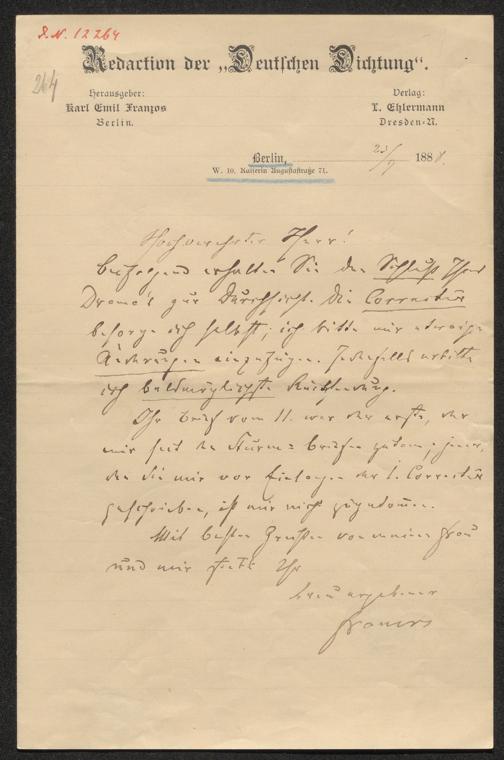 I. N. 12264
264
Redaction der „Deutschen Dichtung“.
Herausgeber:
Karl Emil Franzos
Berlin.
Verlag:
L. Ehlermann
Dresden-N.
Berlin, 23/9 1888.
W. 10. Kaiserin Augustastraße 71.
Hochverehrter Herr!
Beifolgend erhalten Sie den Schluß Ihres
Drama's zur Durchsicht. Die Correctur
besorge ich selbst; ich bitte nur etwaige
Änderungen einzufügen. Jedenfalls erbitte
ich baldmöglichste Rücksendung.
Ihr Brief vom 11. war der erste, der
mir seit den
den Sie mir vor Einlangen der 1. Correctur
geschrieben, ist mir nicht zugekommen.
Mit besten Grüßen von meiner Frau
und mir stets Ihr
treu ergebener
Franzos